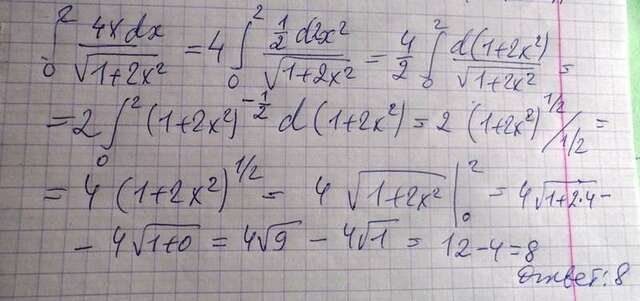 ∫₀² 4xdx/√(1+2x²) = 4 ∫₀² ½ d2x²/√(1+2x²) = 4/2 ∫₀² d(1+2x²)/√(1+2x²) =
= 2 ∫₀² (1+2x²)^(-1/2) d(1+2x²) = 2 (1+2x²)^(1/2) / 1/2 =
= 4 (1+2x²)^(1/2) = 4 √(1+2x²) |₀² = 4√(1+2·4) -
- 4√(1+0) = 4√9 - 4√1 = 12-4=8
Ответ: 8